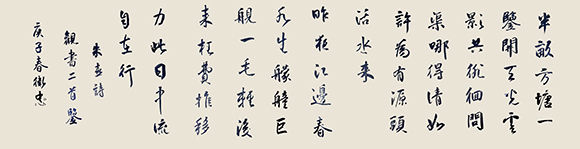 半畝方塘一
鑒開天光雲
影共徘徊問
渠哪得清如
許為有源頭
活水来
昨夜江邊春
水生艨艟巨
艦一毛輕
来枉費推移
力此日中流
自在行
朱熹詩
觀書二首鑒
庚子春衛忠